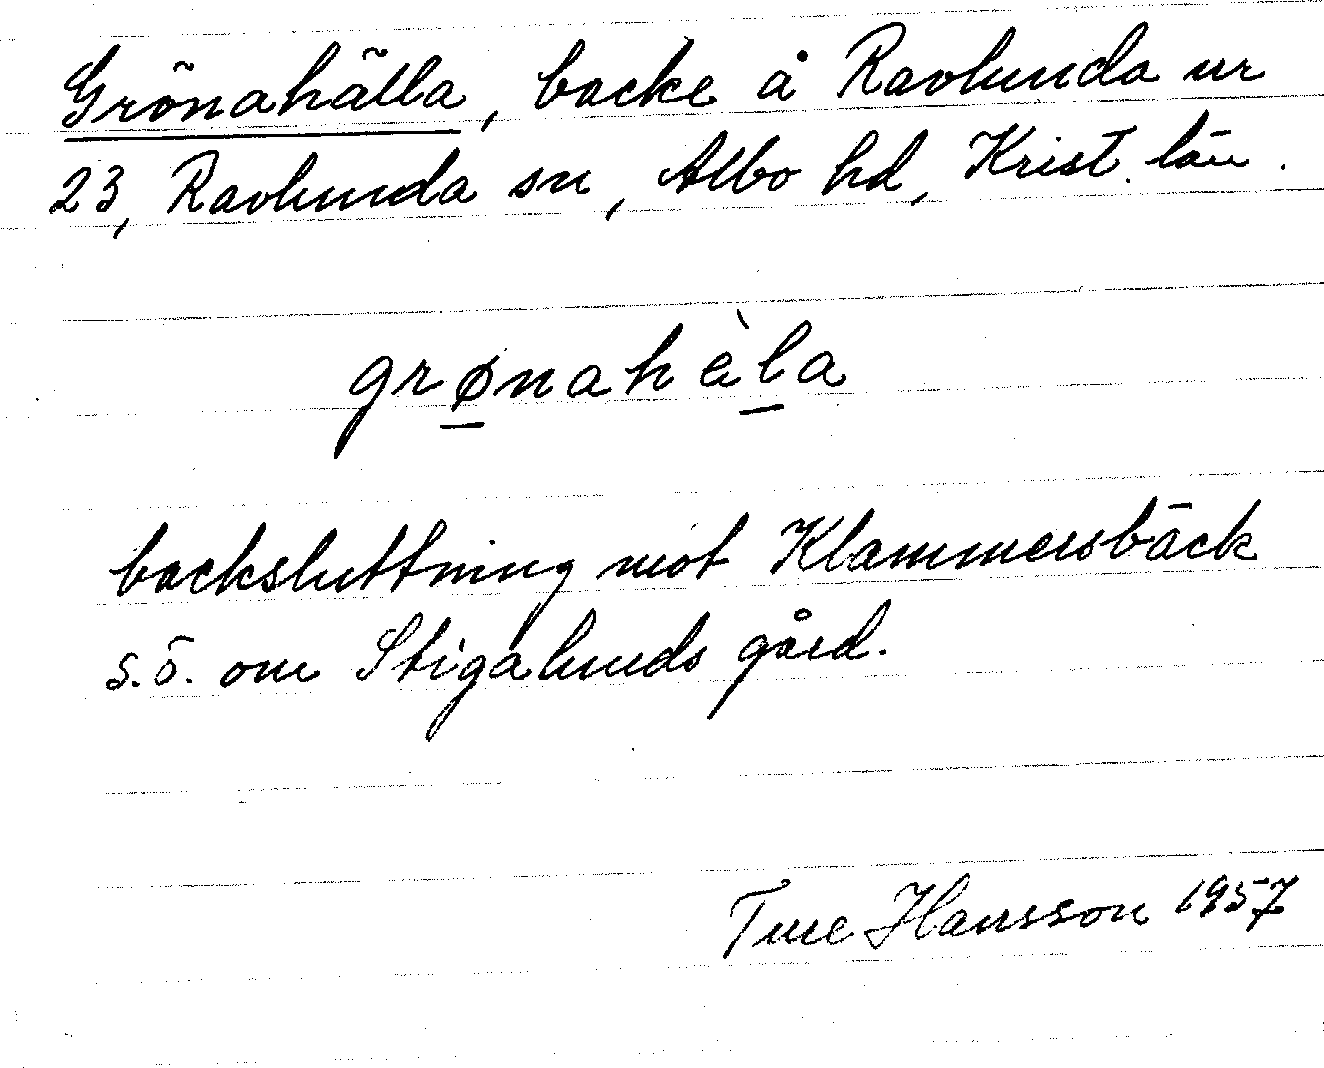 Grönahälla, backe å Ravlunda nr
23, Ravlunda sn, Albo hd, Krist. län.
grø̱nahèḻa
backsluttning mot Klammersbäck
s.ö. om Stigalunds gård.
Ture Hansson 1957